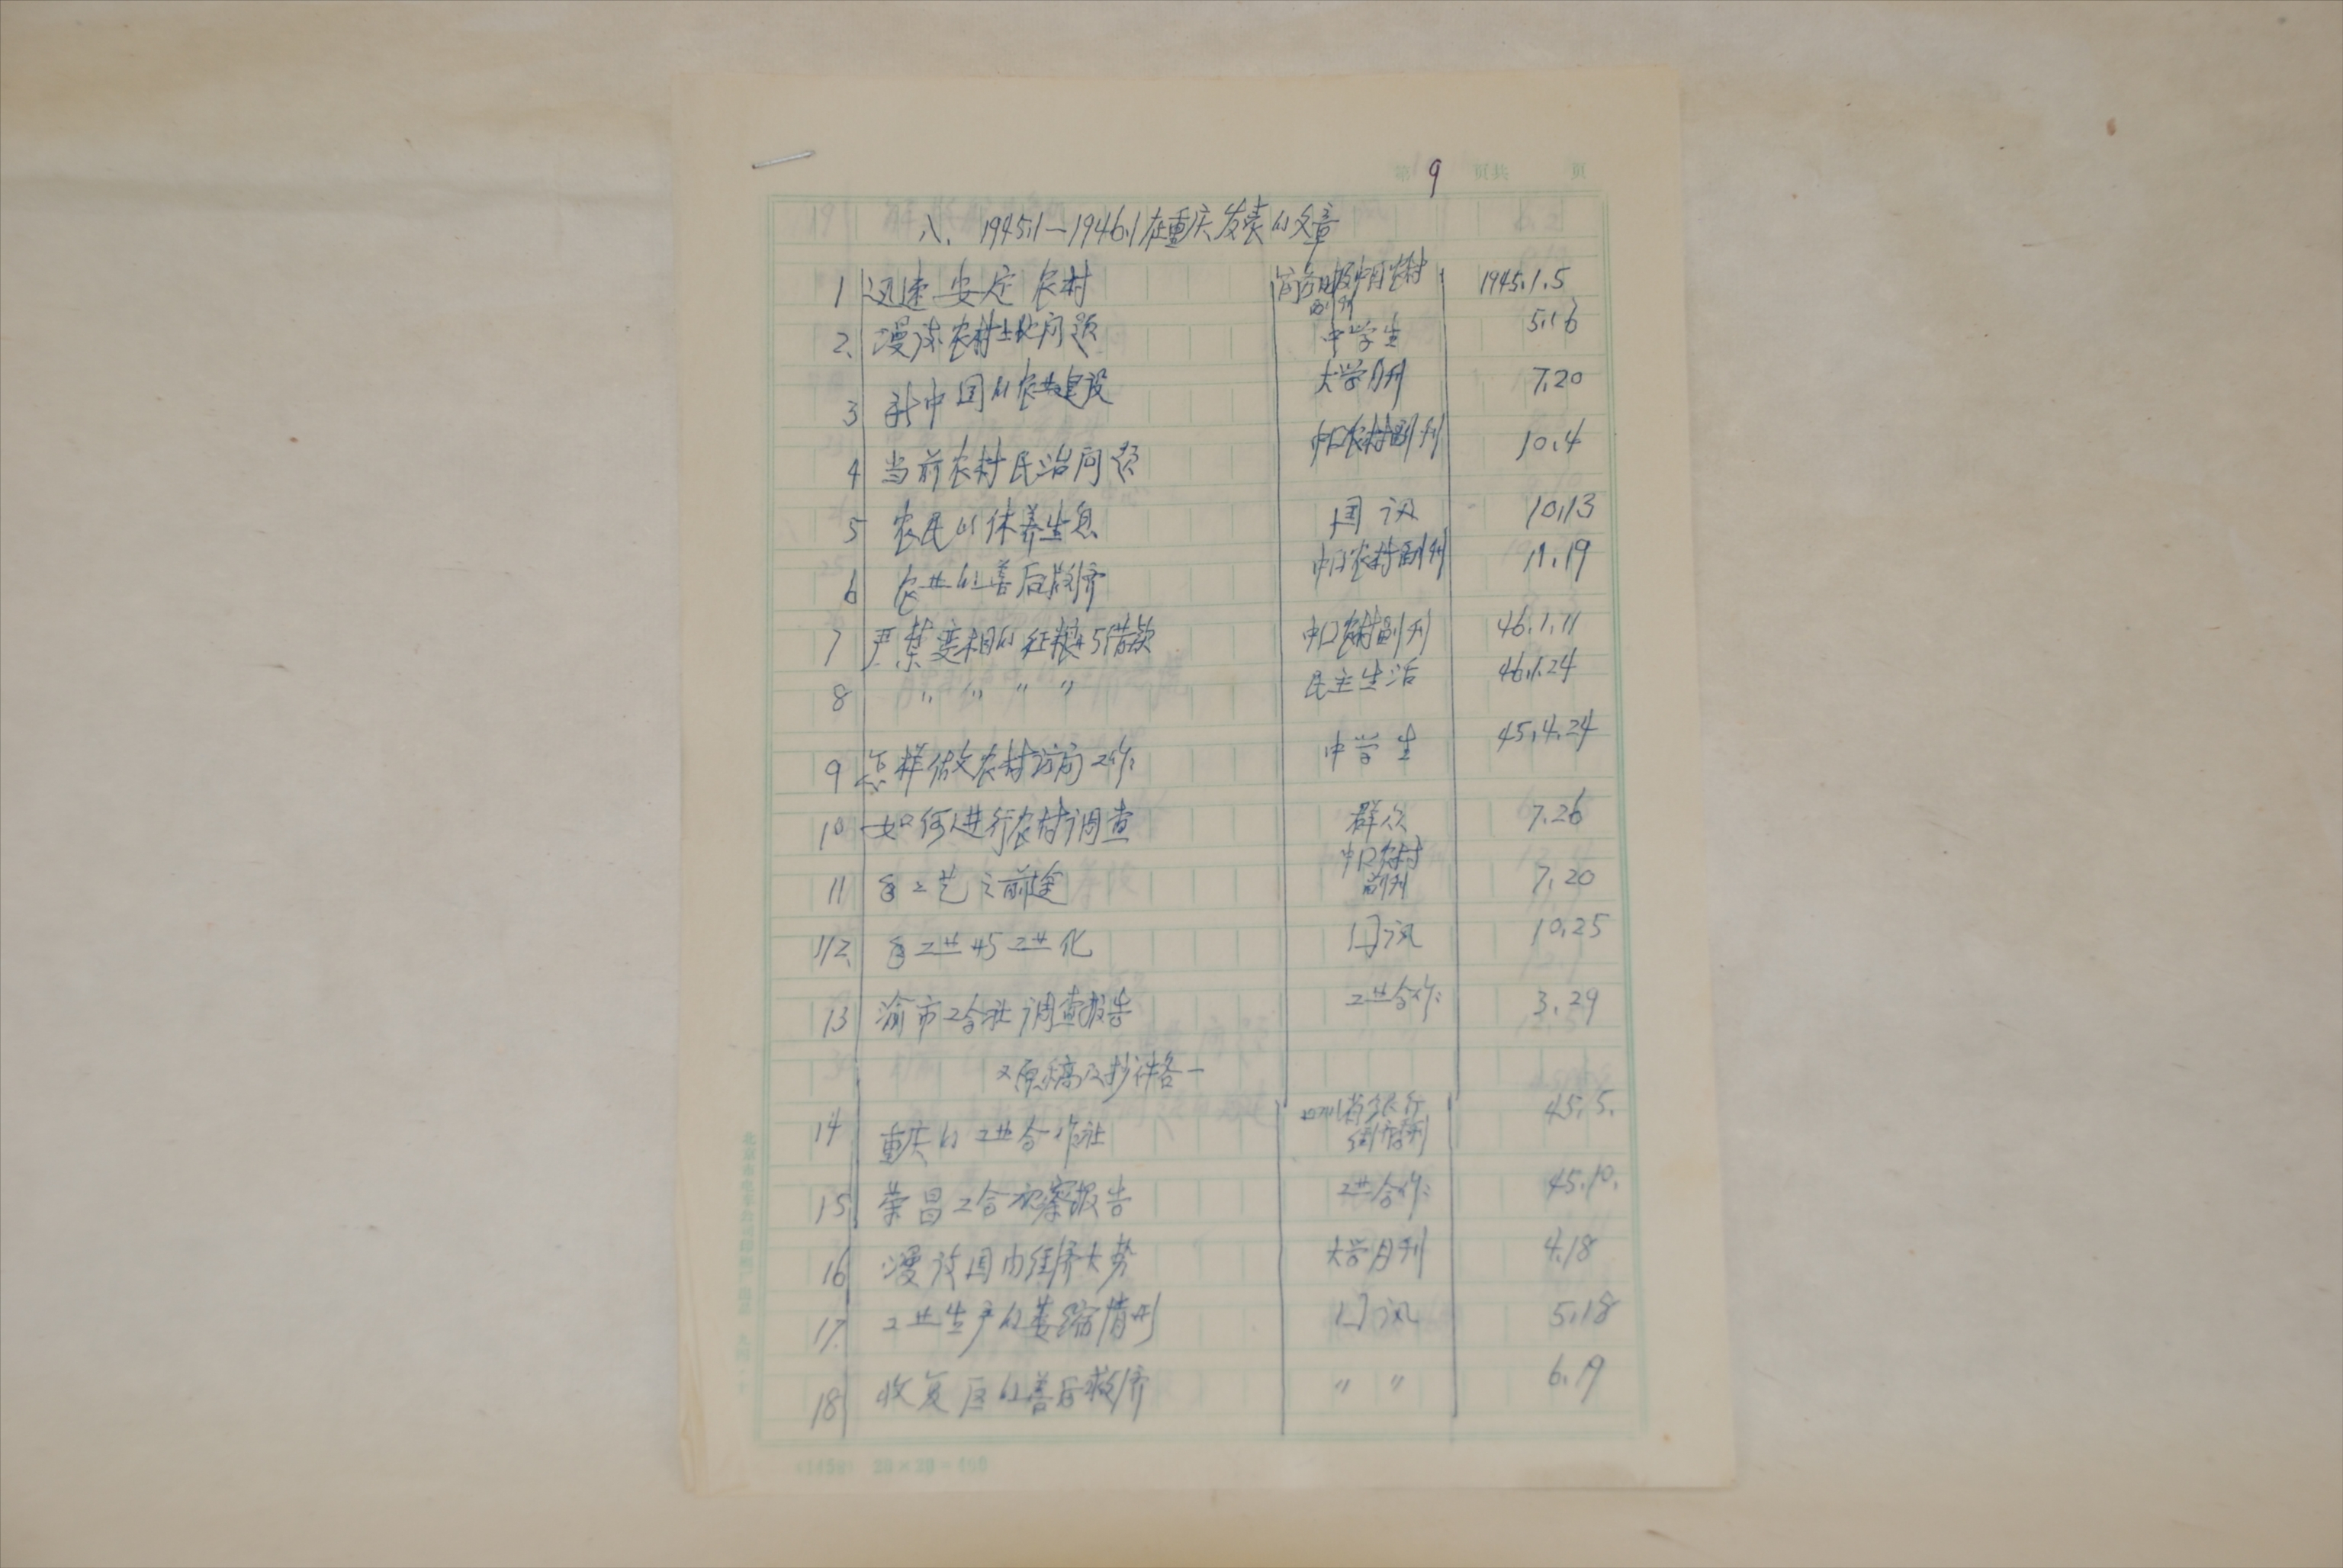 第 9 页 共 页
八、1945.1—1946.1在重庆发表的文章
1 迅速安定农村 商务日报中国农村副刊 1945.1.5
2、漫谈农村土地问题 中学生 5.16
3 新中国的农业建设 大学月刊 7.20
4 当前农村民治问题 中囗农村副刊 10.4
5 农民的休养生息 国讯 10.13
6 农业的善后救济 中国农村副刊 11.19
7 严禁变相的征粮与借款 中囗农村副刊 46.1.11
8 〃 〃 〃 〃 民主生活 46.1.24
9 怎样做农村访问工作 中学生 45.4.24
10 如何进行农村调查 群众 7.26
11 手工艺之前途 中囗农村副刊 7.20
12、手工业与工业化 囗讯 10.25
13 渝市工合社调查报告 工业合作 3.29
又原稿及抄件各一
14 重庆的工业合作社 四川省银行经济季刊 45.5.
15 荣昌工合视察报告 工业合作 45.10.
16 漫谈国内经济大势 大学月刊 4.18
17 工业生产的萎缩情形 囗讯 5.18
18 收复区的善后救济 〃 〃 6.19
20×20=400